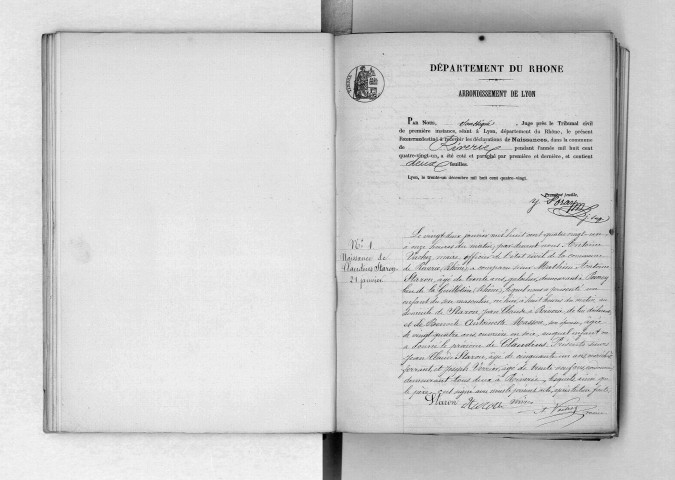 DÉPARTEMENT DU RHONE
ARRONDISSEMENT DE LYON
PAR NOUS, soussigné, Juge près le Tribunal civil
de première instance, séant à Lyon, département du Rhône, le présent
destiné à recevoir les déclarations de Naissances, dans la commune
de Riverie pendant l'année mil huit cent
quatre-vingt-un, a été coté et paraphé par première et dernière, et contient
deux feuilles.
Lyon, le trente-un décembre mil huit cent quatre-vingt.
Première feuille,
N° 1
Naissance de
Claudius Staron
21 janvier
Le vingt deux janvier mil huit cent quatre vingt un
à onze heures du matin, par devant nous Antoine
Vachez maire, officier de l'état civil de la commune
de Riverie, Rhône, a comparu sieur Mathieu Antoine
Staron, âgé de trente ans, demeurant à
de la Guillotière, Rhône, lequel nous a présenté un
enfant du sexe masculin, né hier à huit heures du matin, au
domicile de Staron Jean Claude à Riverie, de lui déclarant
et de Antoinette Masson, son épouse, âgée
de vingt quatre ans ouvrière en soie, auquel enfant il
a donné le prénom de Claudius. Présents sieurs
Jean Claude Staron, âgé de cinquante un ans maréchal
ferrant, et Joseph Verrier, âgé de trente neuf ans
demeurant tous deux à Riverie, lesquels ainsi que
le père, ont signé avec nous le présent acte, après lecture faite.
Staron Staron
Vachez maire